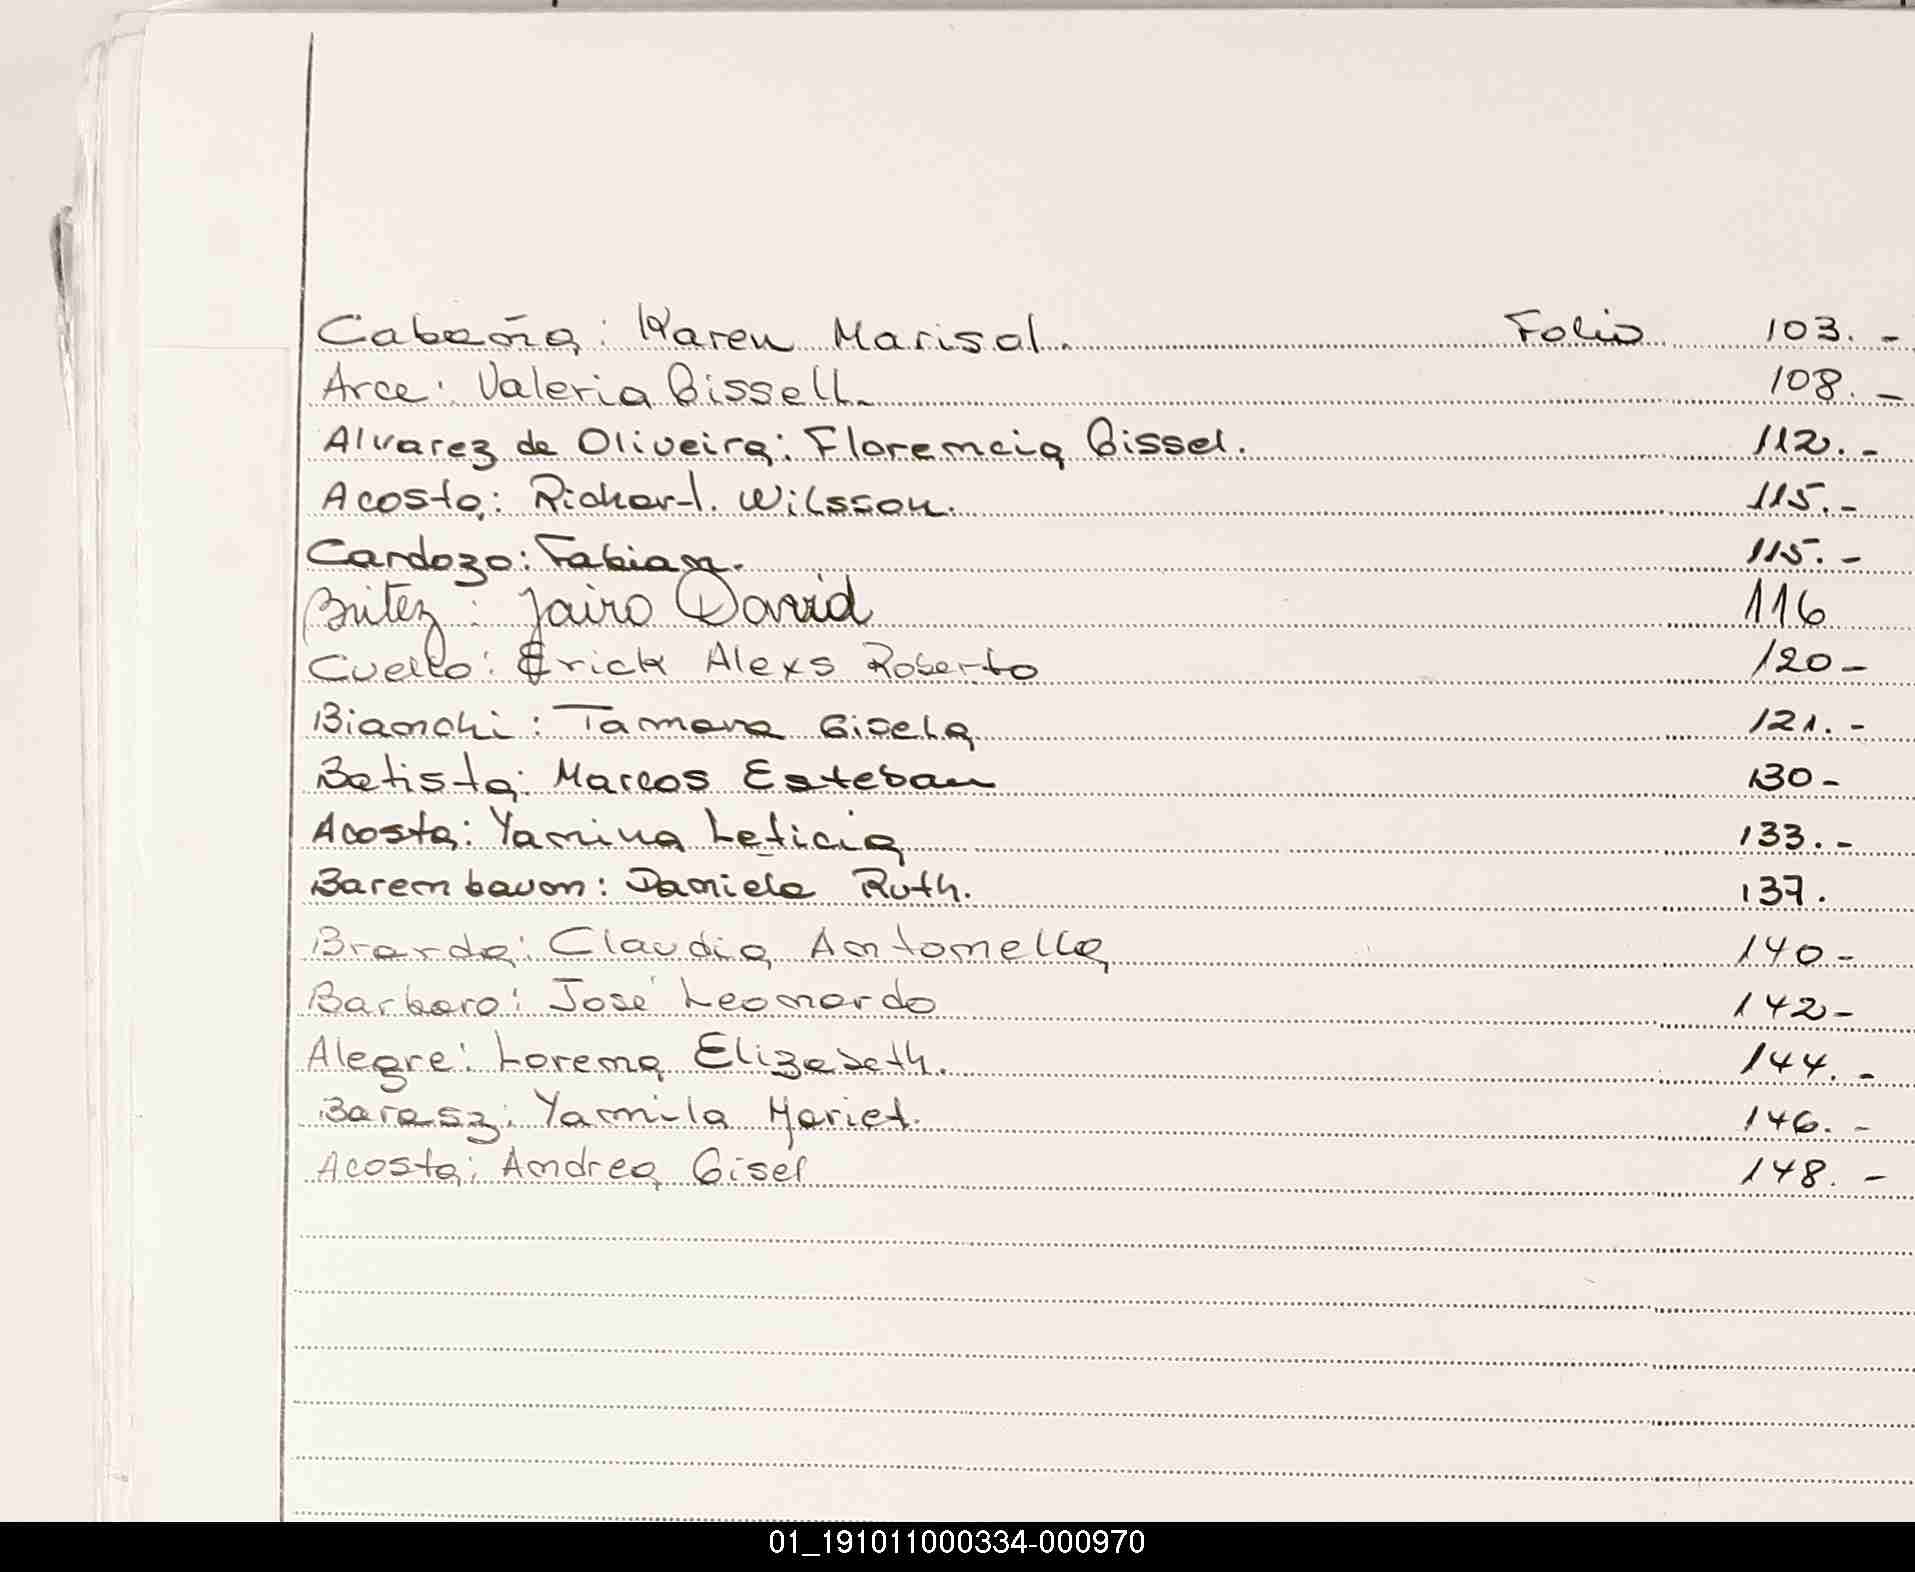 Cabaña: Karen Marisol. Folio 103.-
Arce: Valeria Gissell. 108.-
Alvarez de Oliveira: Florencia Gissel. 112.-
Acosta: Richar-l. Wilsson. 115.-
Cardozo: Fabian. 115.-
Britez: Jairo David 116
Cuello: Erick Alexs Roberto 120-
Bianchi: Tamara Gisela 121.-
Batista: Marcos Esteban 130-
Acosta: Yamina Leticia 133.-
Barembaum: Daniela Ruth. 137.
Brarda: Claudia Antonella 140-
Barbaro: José Leonardo 142-
Alegre: Lorena Elizabeth. 144.-
Barasz: Yamila Mariet. 146.-
Acosta: Andrea Gisel 148.-
01_191011000334-000970